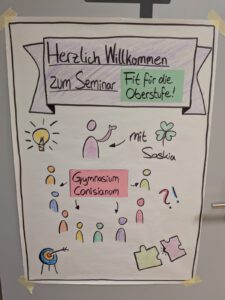 Herzlich Willkommen
zum Seminar Fit für die
Oberstufe!
mit
Saskia
Gymnasium
Canisianum
?!